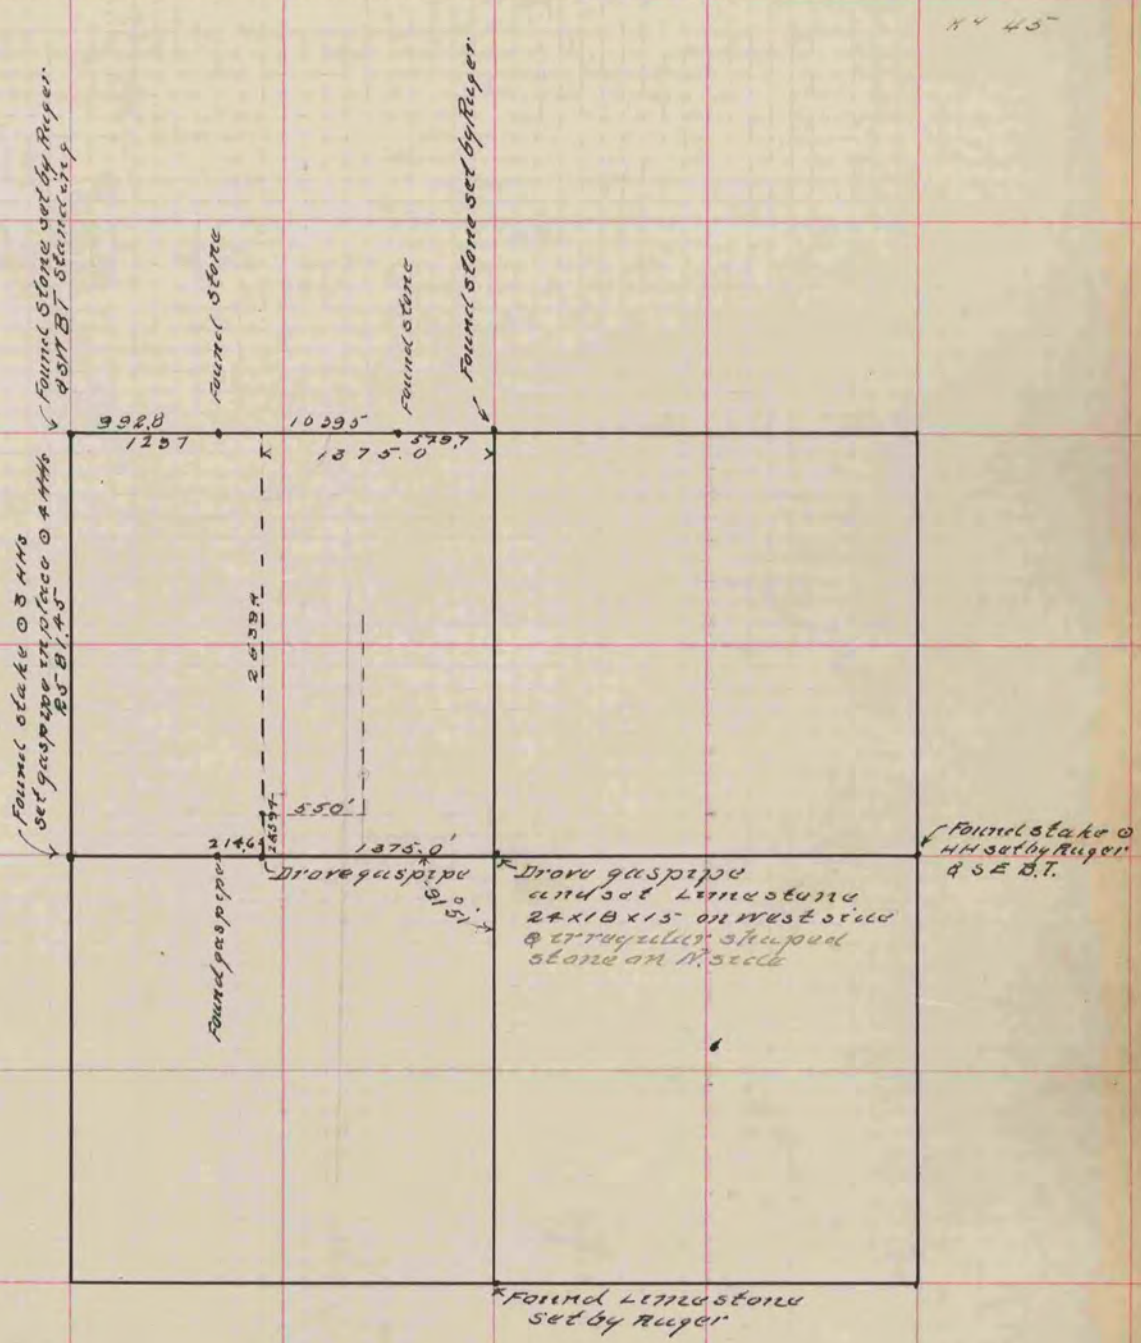 45
Found Stone set by Ruger
& SW BT Standing
Found Stone
Found stone
Found stone set by Ruger
992.8
1297
579.7
1375.0
Found stake ⊙ 3 HHs
set gaspipe in place ⊙ 4 HHs
RS-81.45
550'
214.6
1375.0'
Drove gaspipe
Found gaspipe
Drove gaspipe
and set Limestone
24x18x15 on West side
& irregular shaped
stone on N. side
Found stake ⊙
HH set by Ruger
& SE B.T.
Found Limestone
set by Ruger